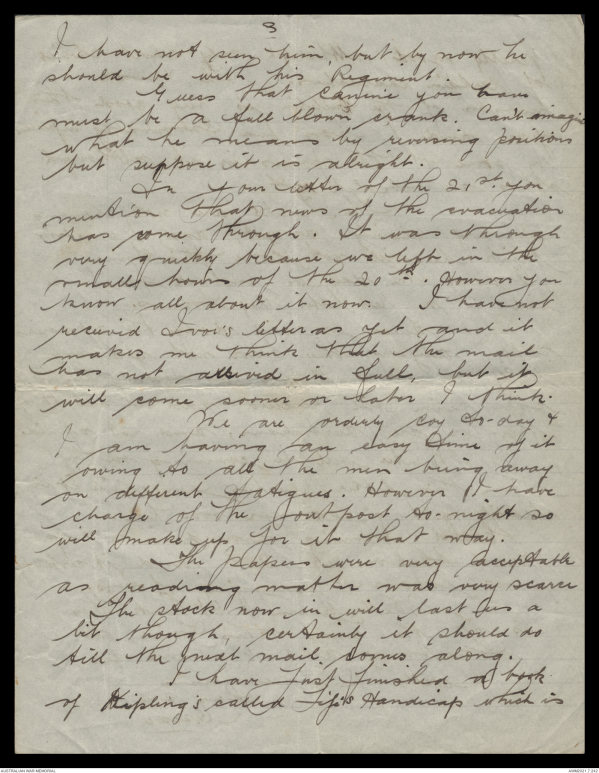 3
I have not seen him, but by now he
should be with his Regiment.
Guess that canine you have
must be a full blown crank. Can't imagine
what he means by reversing positions
but suppose it is alright.
In your letter of the 21st. you
mention that news of the evacuation
has come through. It was through
very quickly because we left in the
small hours of the 20th. However you
know all about it now. I have not
received Ivor's letter as yet and it
makes me think that the mail
has not arrived in full, but it
will come sooner or later I think.
We are orderly coy to-day &
I am having an easy time of it
owing to all the men being away
on different fatigues. However I have
charge of the outpost to-night so
will make up for it that way.
The papers were very acceptable
as reading matter was very scarce
The stock now in will last us a
bit though, certainly it should do
till the next mail comes along.
I have just finished a book
of Kipling's called Life's Handicap which is
AUSTRALIAN WAR MEMORIAL